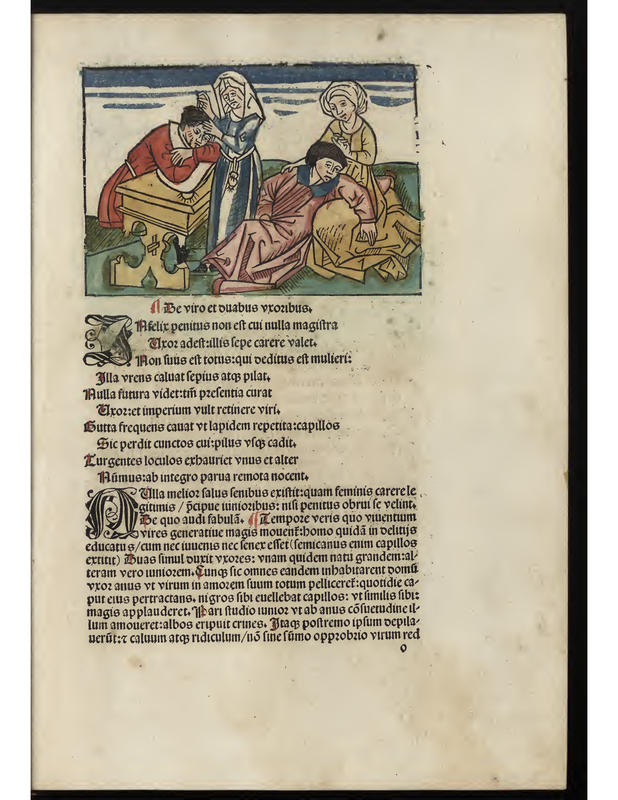 ¶ De viro et duabus vxoribus.
INfelix penitus non est cui nulla magistra
Uxor adest:illis sepe carere valet.
Non suus est totus:qui deditus est mulieri:
Illa vrens caluat sepius atqʒ pilat.
Nulla futura videt:tm̄ presentia curat
Uxor:et imperium vult retinere viri.
Gutta frequens cauat vt lapidem repetita:capillos
Sic perdit cunctos cui:pilus vsqʒ cadit.
Turgentes loculos exhauriet vnus et alter
Nūmus:ab integro parua remota nocent.
NUlla melior salus senibus existit:quam feminis carere le
gitimis / p̄cipue iunioribus: nisi penitus obrui se velint.
De quo audi fabulā. ¶ Tempore veris quo viuentium
vires generatiue magis mouent̄:homo quidā in delitijs
educatus/cum nec iuuenis nec senex esset (semicanus enim capillos
extitit) Duas simul duxit vxores: vnam quidem natu grandem:al-
teram vero iuniorem. Cunqʒ sic omnes eandem inhabitarent domū
vxor anus vt virum in amorem suum totum pelliceret̄:quotidie ca-
put eius pertractans. nigros sibi euellebat capillos: vt similis sibi:
magis applauderet. Pari studio iunior vt ab anus cōsuetudine il-
lum amoueret:albos eripuit crines. Itaqʒ postremo ipsum depila-
uerūt:⁊ caluum atqʒ ridiculum/nō sine sūmo opprobrio virum red
o